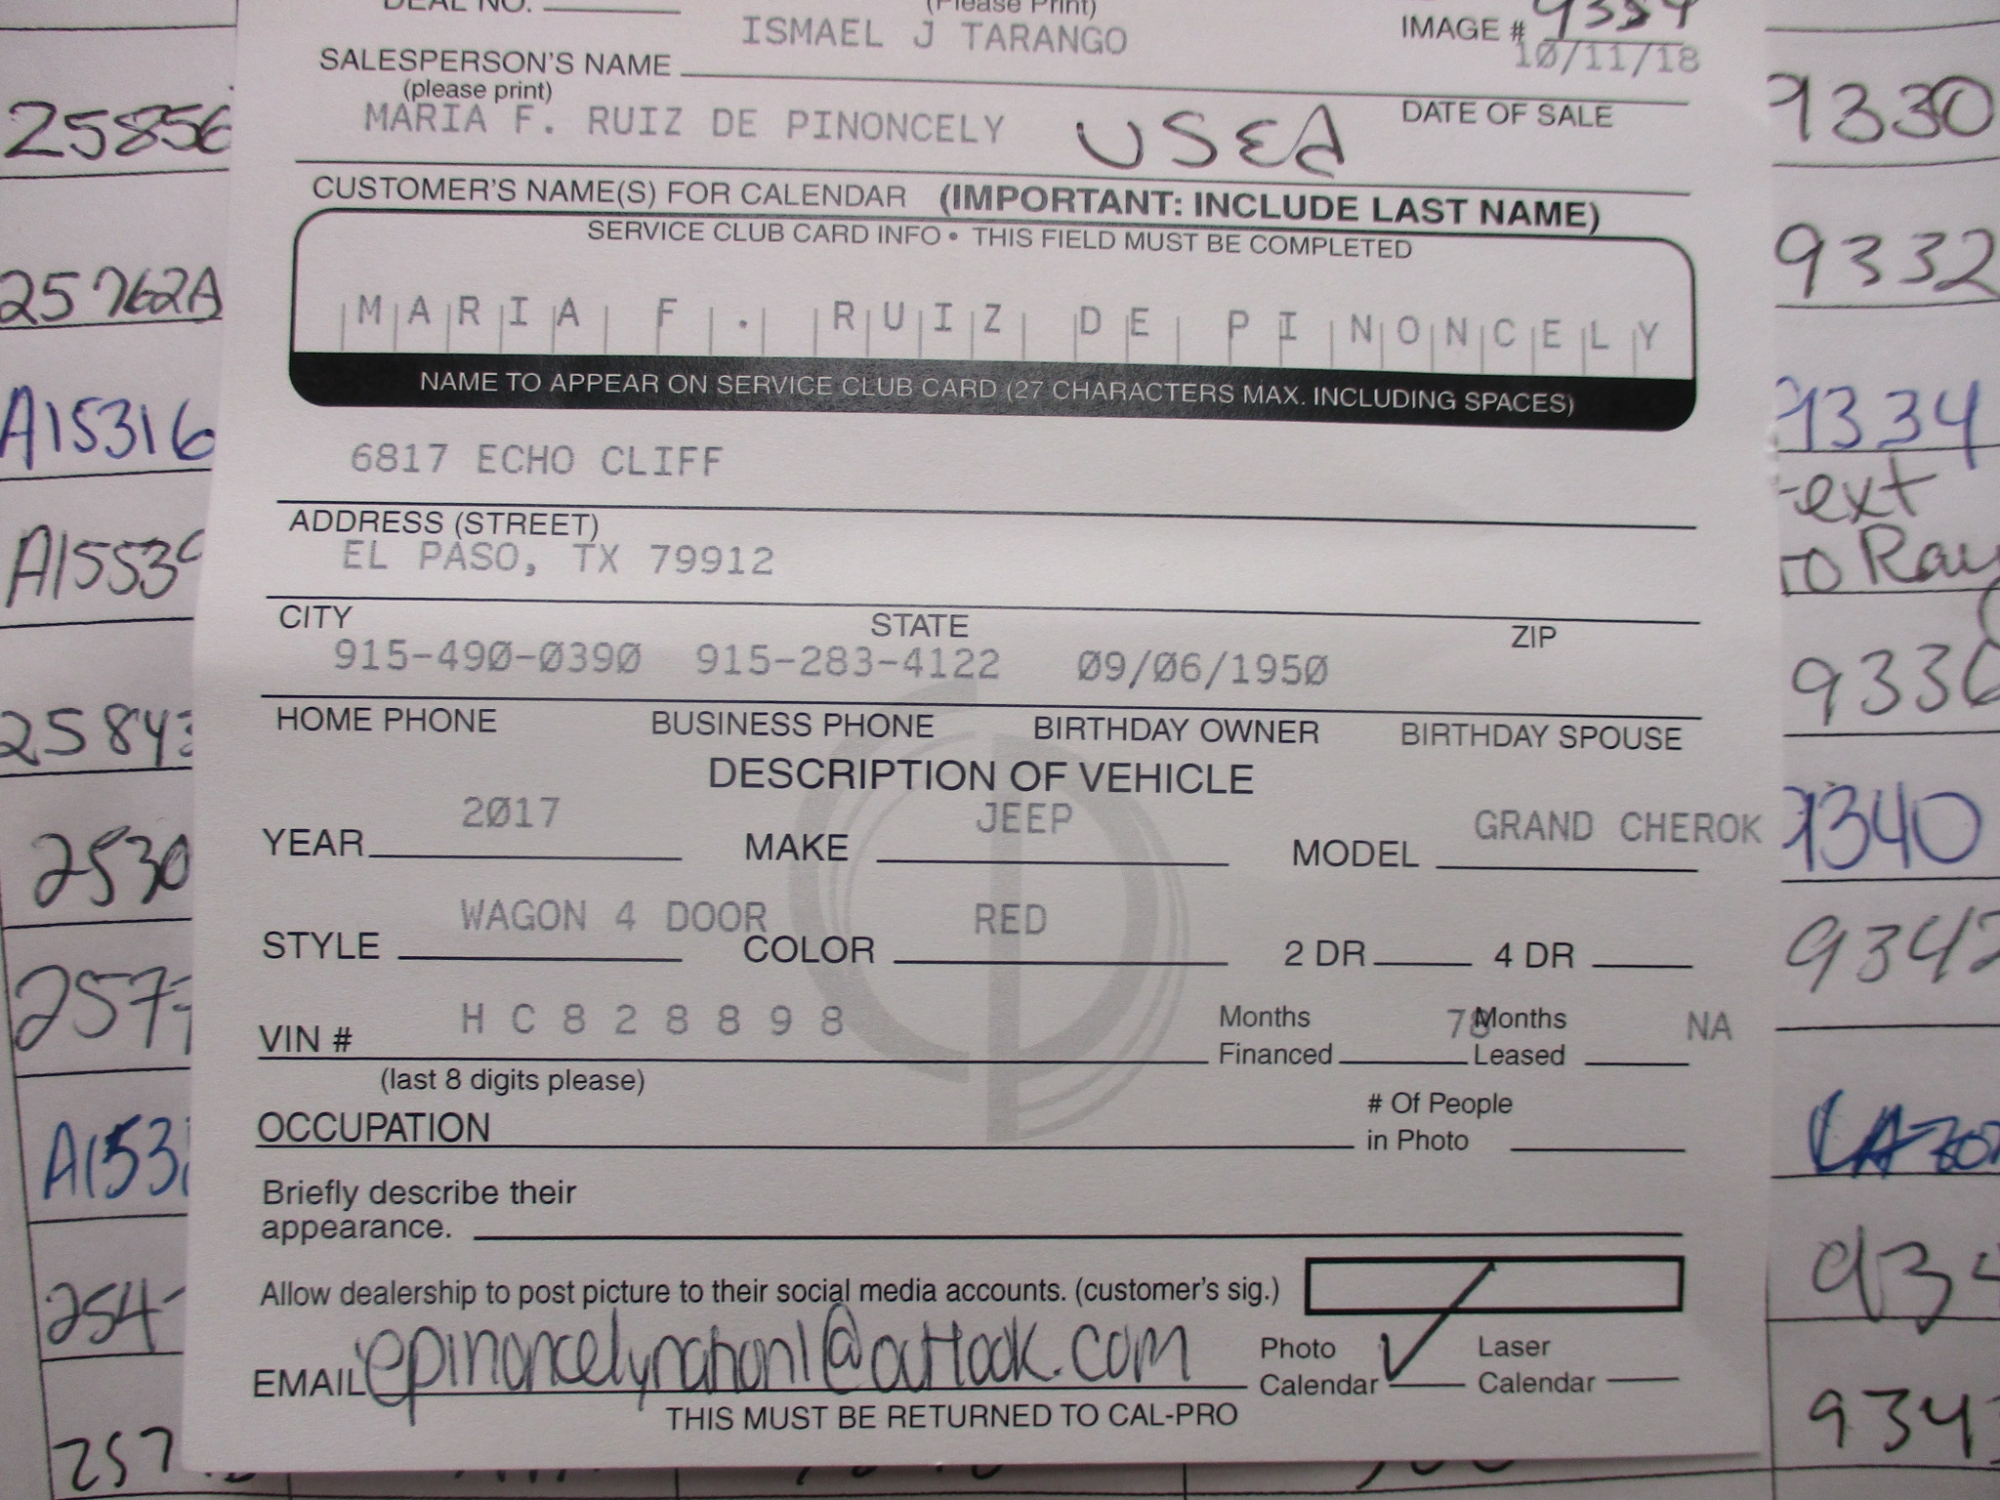 DEAL NO.
(Please Print)
ISMAEL J TARANGO
IMAGE # 9334
10/11/18
SALESPERSON'S NAME
(please print)
DATE OF SALE
MARIA F. RUIZ DE PINONCELY USED
CUSTOMER'S NAME(S) FOR CALENDAR (IMPORTANT: INCLUDE LAST NAME)
SERVICE CLUB CARD INFO • THIS FIELD MUST BE COMPLETED
MARIA F. RUIZ DE PINONCELY
NAME TO APPEAR ON SERVICE CLUB CARD (27 CHARACTERS MAX. INCLUDING SPACES)
6817 ECHO CLIFF
ADDRESS (STREET)
EL PASO, TX 79912
CITY STATE ZIP
915-490-0390 915-283-4122 09/06/1950
HOME PHONE BUSINESS PHONE BIRTHDAY OWNER BIRTHDAY SPOUSE
DESCRIPTION OF VEHICLE
YEAR 2017 MAKE JEEP MODEL GRAND CHEROK
STYLE WAGON 4 DOOR COLOR RED 2 DR 4 DR
VIN # HC828898 Months Financed 78 Months Leased NA
(last 8 digits please)
OCCUPATION # Of People in Photo
Briefly describe their
appearance.
Allow dealership to post picture to their social media accounts. (customer's sig.)
EMAIL Photo Calendar ✓ Laser Calendar
THIS MUST BE RETURNED TO CAL-PRO
25856
25762A
A15316
A1553
25843
2530
257
A153
254
257
9330
9332
9334
ext
to Ray
9336
9340
9342
934